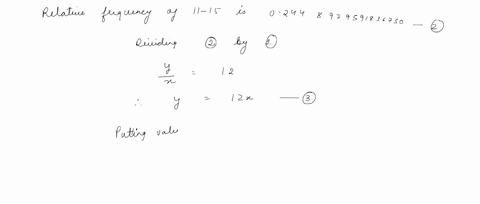 Relative frequency of 11-15 is 0.244 8 979591836730 — ②
Dividing ② by ①
y/x = 12
∴ y = 12x — ③
Putting value